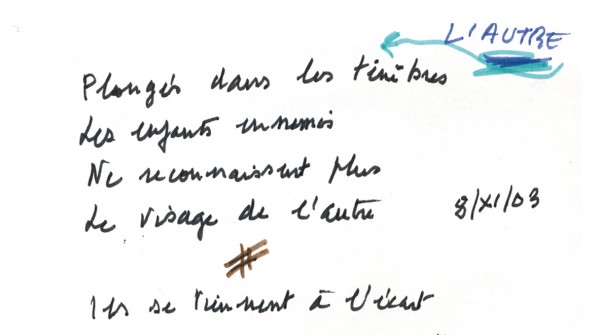 L'AUTRE
Plongés dans les ténèbres
Les enfants ennemis
Ne reconnaissent plus
Le visage de l'autre 8/XI/03
#
Ils se tiennent à l'écart